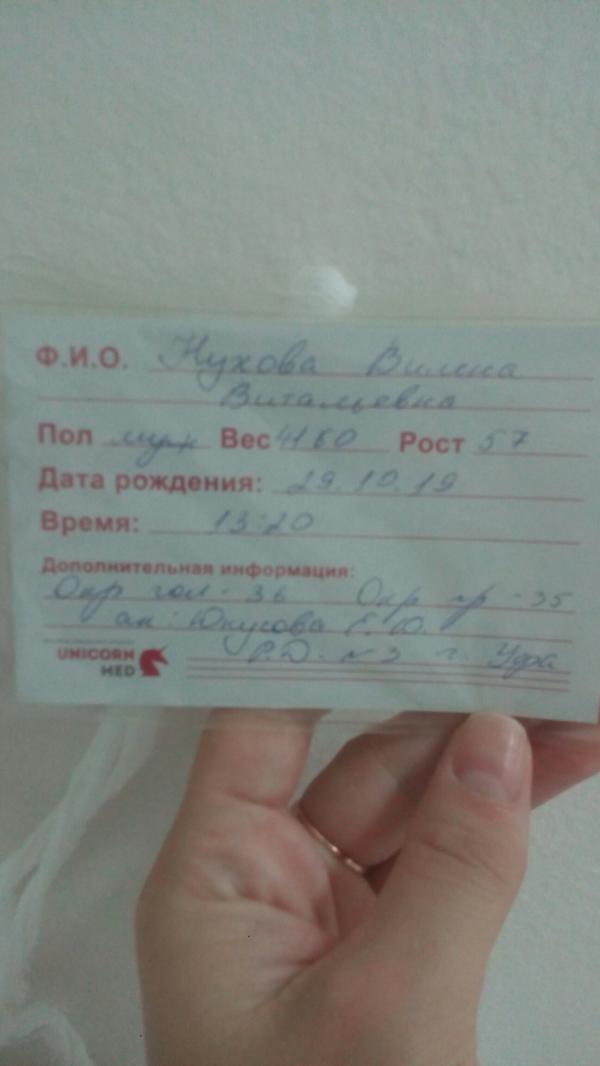 Ф.И.О. Нухова Вилена
Витальевна
Пол муж Вес 4160 Рост 57
Дата рождения: 29.10.19
Время: 13:20
Дополнительная информация:
Окр гол - 36 Окр гр - 35
ак: Юнусова Е.Ю.
UNICORN MED
Р.Д. №3 г. Уфа